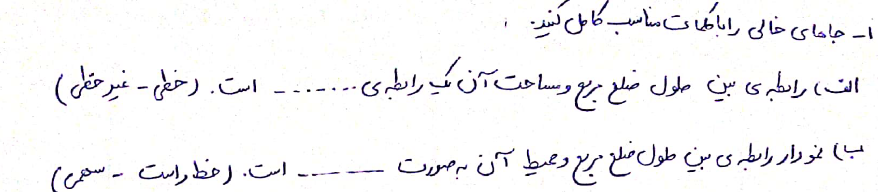 ۱- جاهای خالی را با کلمات مناسب کامل کنید.
الف) رابطه‌ی بین طول ضلع مربع و مساحت آن یک رابطه‌ی ........ است. (خطی - غیرخطی)
ب) نمودار رابطه‌ی بین طول ضلع مربع و محیط آن به صورت ـــــــ است. (خط راست - سهمی)